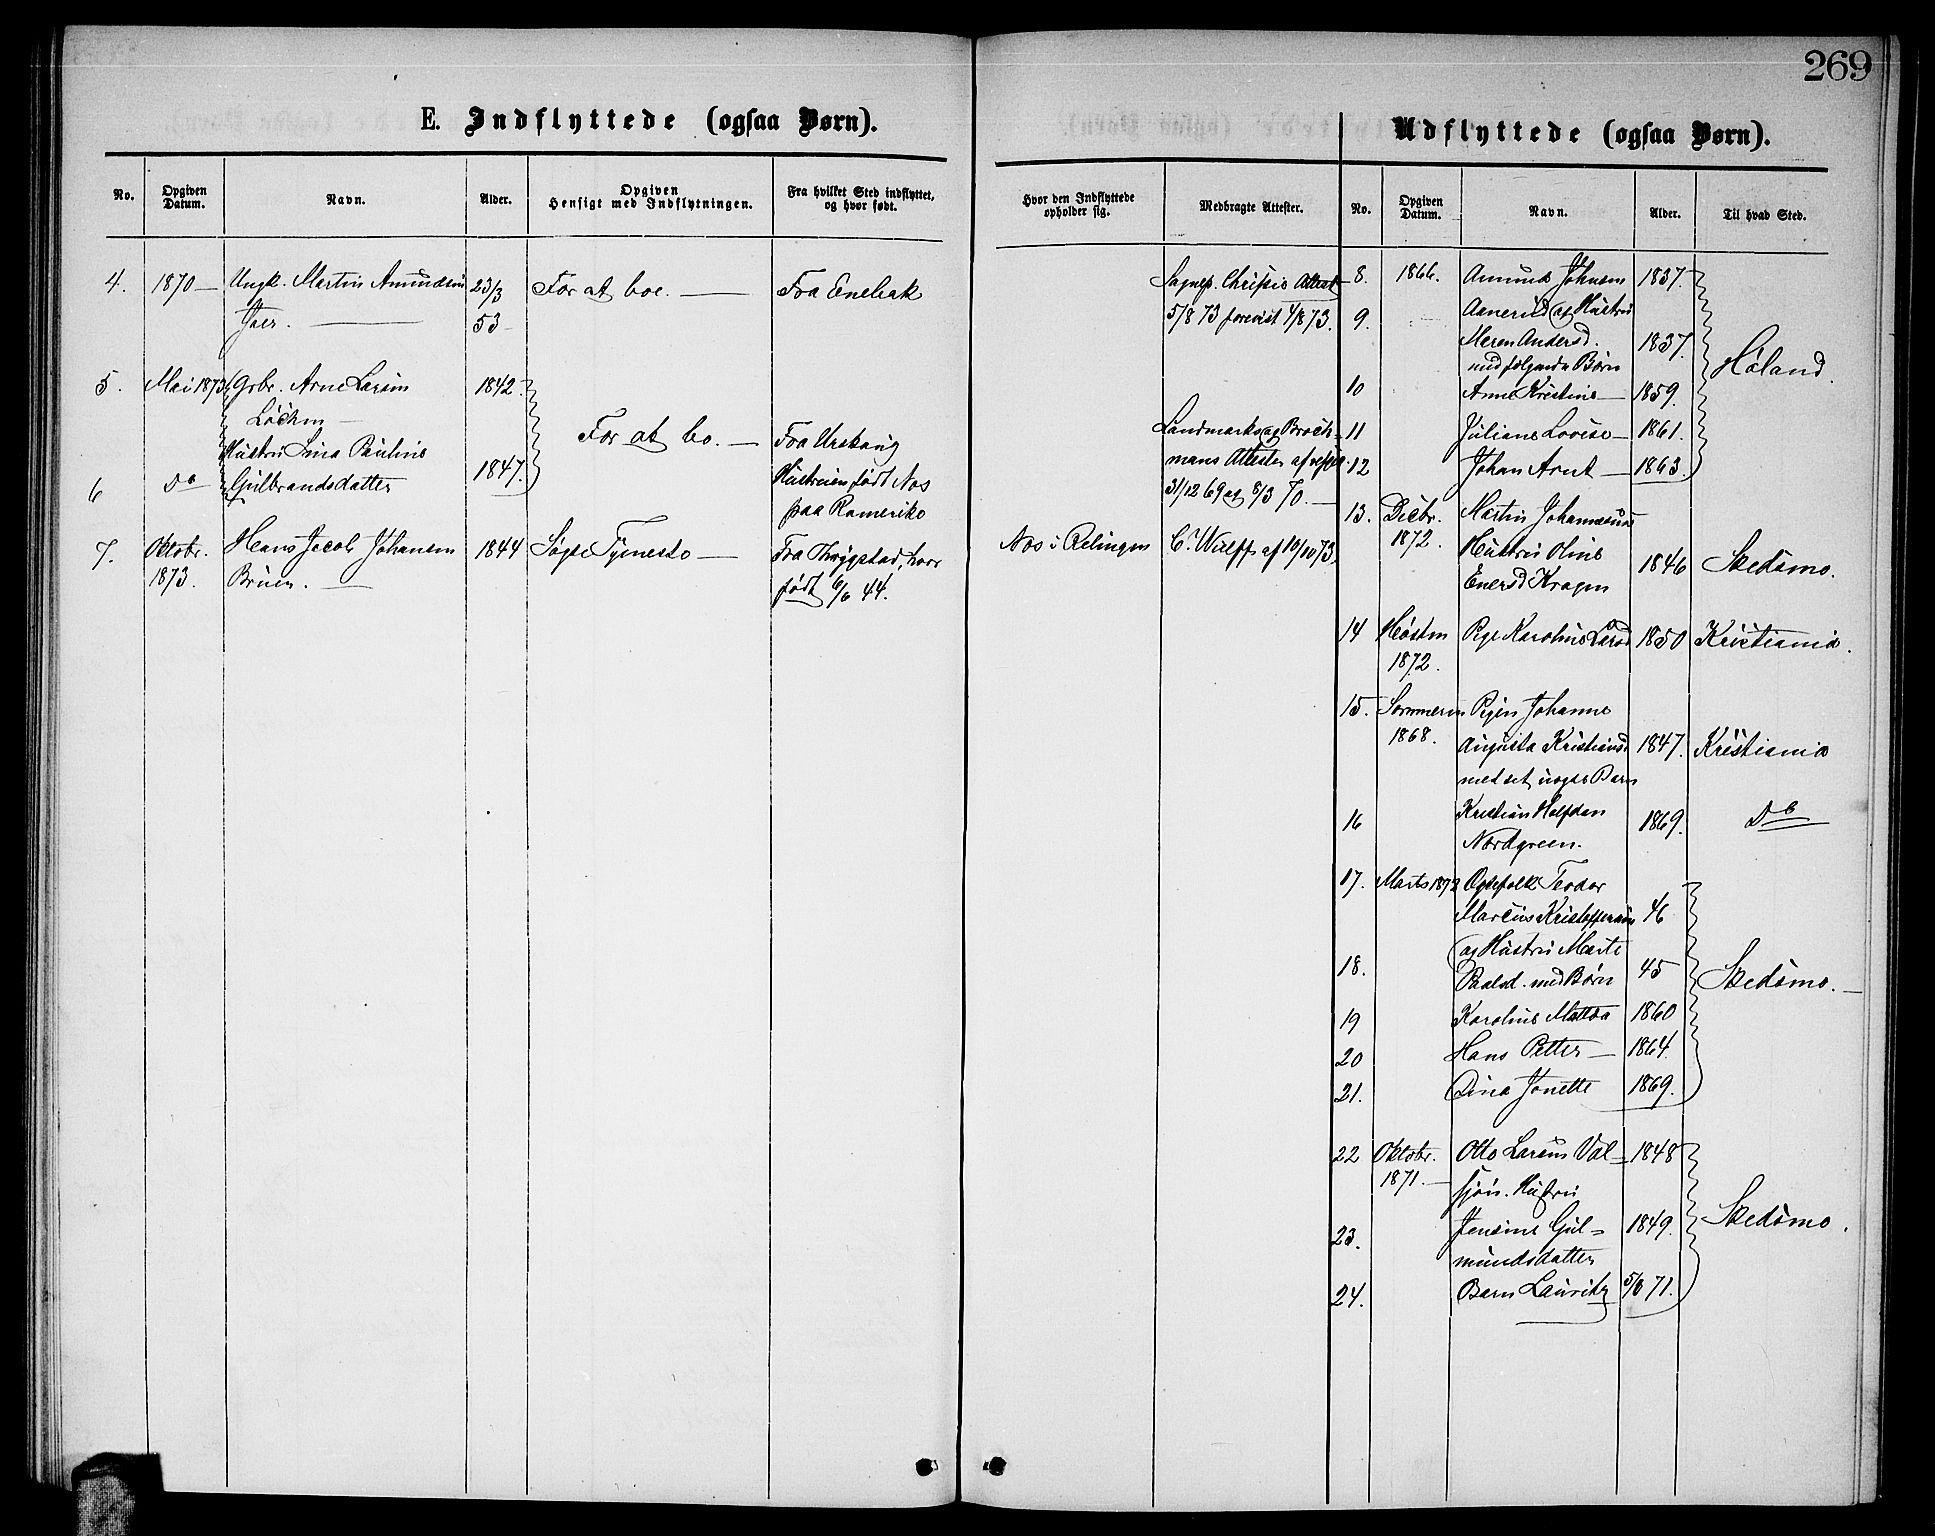 269
E. Indflyttede (ogsaa Børn).
No.
Opgiven Datum.
Navn.
Alder.
Opgiven Hensigt med Indflytningen.
Fra hvilket Sted indflyttet, og hvor født.
Hvor den Indflyttede opholder sig.
Medbragte Attester.
4. 1870 — Ungk. Martin Amundsen 23/3 For at boe. — Fra Enebak Sognep. Attest
53 5/8 73 forevist 4/8 73.
5. Mai 1873 Gbr. Arne Larsen 1842.
Hustru Lina Pauline For at bo. — Fra Urskoug Landmarks og Broch-
6 Do Gulbrandsdatter 1847. Hustruen født Nos mans Attester af
paa Romeriko 31/12 69 og 8/3 70. —
7. Oktobr. Hans Jacob Johansen 1844 Søge Tjeneste — Fra Trøgstad, hvor Nos i Relingen C. Wulff af 10/10 73.
1873. Bruer. — født 6/6 44.
Udflyttede (ogsaa Børn).
No.
Opgiven Datum.
Navn.
Alder.
Til hvad Sted.
8. 1866. Amund Johnsen 1837.
9. Aanerud og Hustru
Maren Andersd. 1837. Høland.
med følgende Børn
10 Anne Kristine — 1859.
11 Juliane Lovise — 1861.
12 Johan Arnt — 1863.
13. Decbr. Martin Johannesens
1872. Hustru Oline 1846 Skedsmo.
Enersd Kragen
14 Høsten Pige Karoline Larsd 1850 Kristiania.
1872.
15. Sommeren Pigen Johanne
1868. Augusta Kristiansd 1847. Kristiania
med set uægte Barn
16 Kristian Halfdan 1869. Do
Nordgreen.
17. Marts 1872 Ægtefolk Teodor
Marcus Kristoffersen 46
og Hustru Marte
18. Paalsd. med Børn 45 Skedsmo. —
19 Karoline Matea 1860
20 Hans Petter — 1864.
21. Dina Jonette 1869.
22 Oktobr. Otto Larsen Val- 1848
1871. — sjøn. Hustru
23. Jensine Gul- 1849. Skedsmo.
mundsdatter
24. Barn Lauritz 5/6 71.